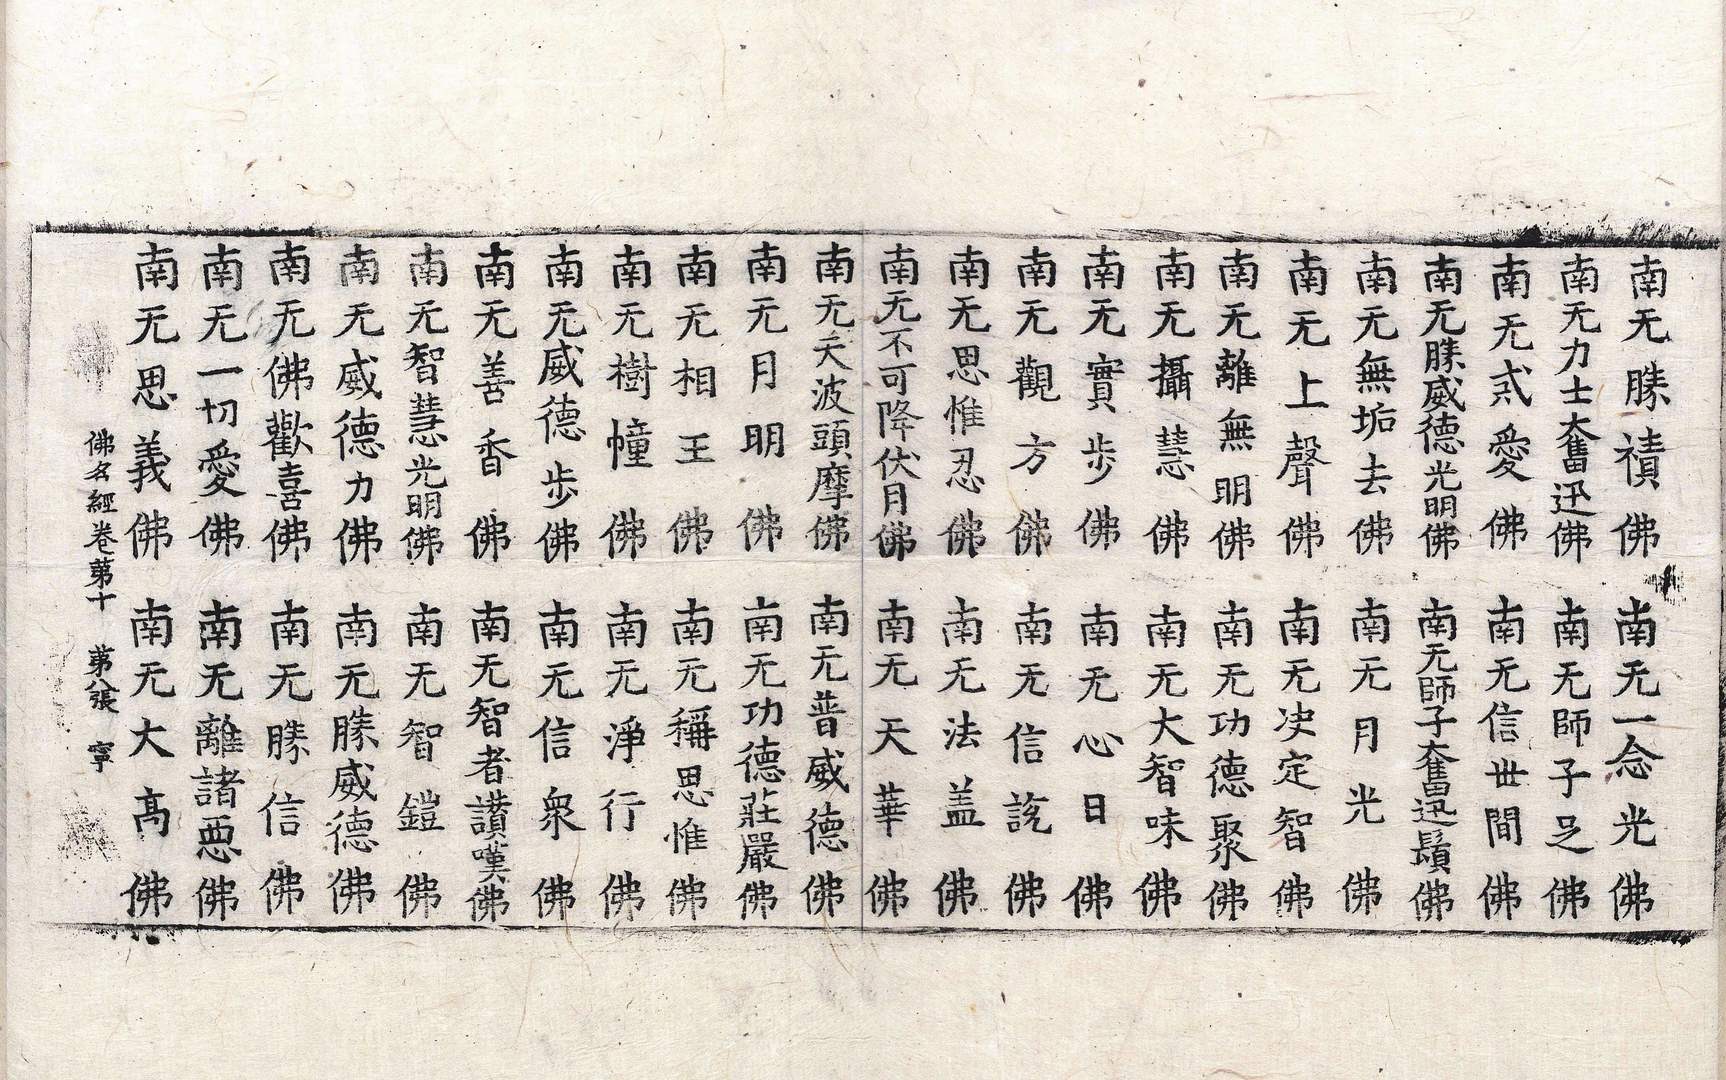 南无勝積佛 南无一念光佛
南无力士奮迅佛 南无師子足佛
南无貳愛佛 南无信世間佛
南无勝威德光明佛 南无師子奮迅鬚佛
南无無垢去佛 南无月光佛
南无上聲佛 南无决定智佛
南无離無明佛 南无功德聚佛
南无攝慧佛 南无大智味佛
南无實步佛 南无心日佛
南无觀方佛 南无信說佛
南无思惟忍佛 南无法盖佛
南无不可降伏月佛 南无天華佛
南无天波頭摩佛 南无普威德佛
南无月明佛 南无功德莊嚴佛
南无相王佛 南无稱思惟佛
南无樹幢佛 南无淨行佛
南无威德步佛 南无信衆佛
南无善香佛 南无智者讚嘆佛
南无智慧光明佛 南无智鎧佛
南无威德力佛 南无勝威德佛
南无佛歡喜佛 南无勝信佛
南无一切愛佛 南无離諸惡佛
南无思義佛 南无大高佛
佛名經卷第十 第八張 寧